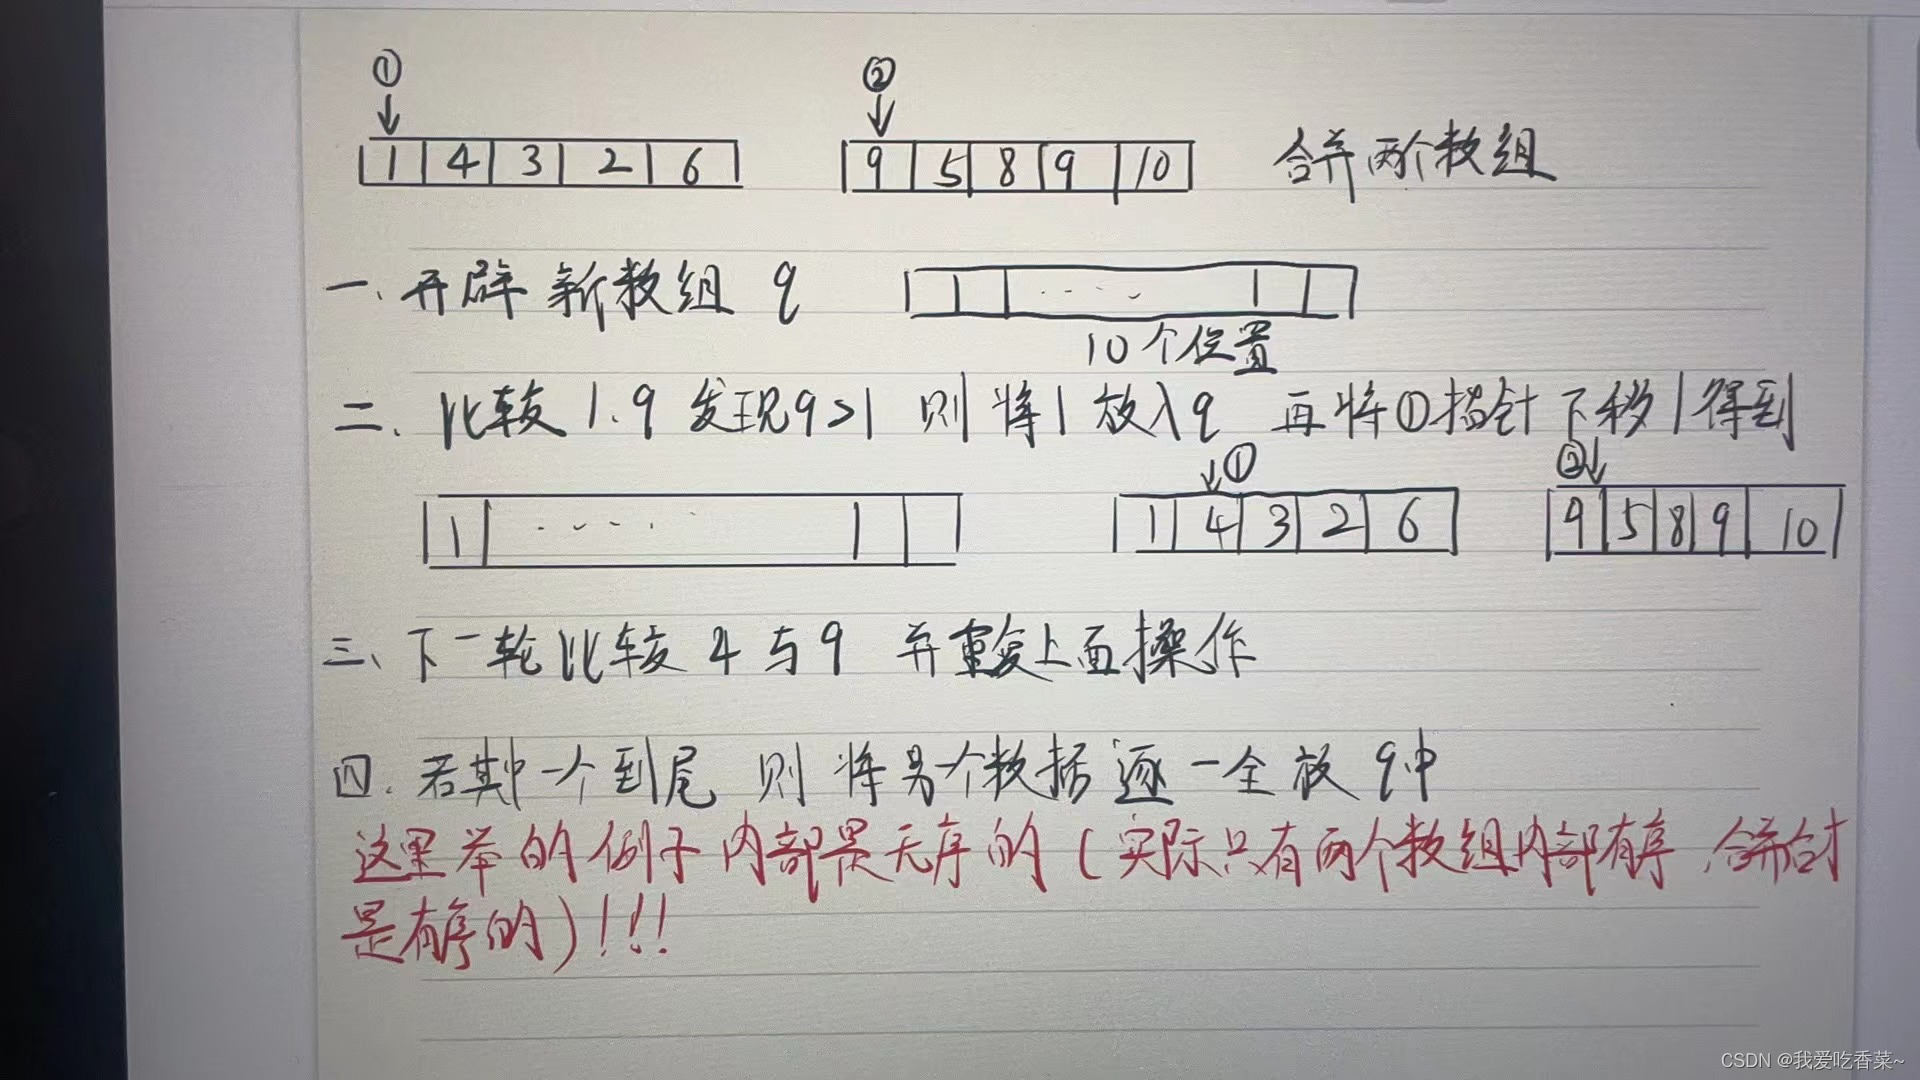 ① ②
1 4 3 2 6 9 5 8 9 10 合并两个数组
一、开辟新数组 q
10个位置
二、比较 1.9 发现9>1 则将1放入q 再将①指针下移1得到
① ②
1 1 4 3 2 6 9 5 8 9 10
三、下一轮比较 4 与 9 并重复上面操作
四.若其中一个到尾 则将另个数据逐一全放 q中
这里举的例子内部是无序的(实际只有两个数组内部有序,合并后才
是有序的)!!!
CSDN @我爱吃香菜~